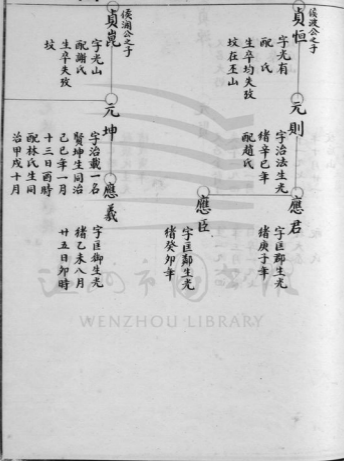 侯波公之子
貞恒
字光有
配　氏
生卒均失攷
坟在玉山
元則
字治法生光
緒辛巳年
配趙氏
應君
字臣鄒生光
緒庚子年
應臣
字臣鄰生光
緒癸卯年
侯潮公之子
貞崑
字光山
配謝氏
生卒失攷
坟
元坤
字治載一名
賢坤生同治
己巳年一月
十三日酉時
配林氏生同
治甲戌十月
應義
字臣御生光
緒乙未八月
廿五日卯時
温州市圖書館
WENZHOU LIBRARY